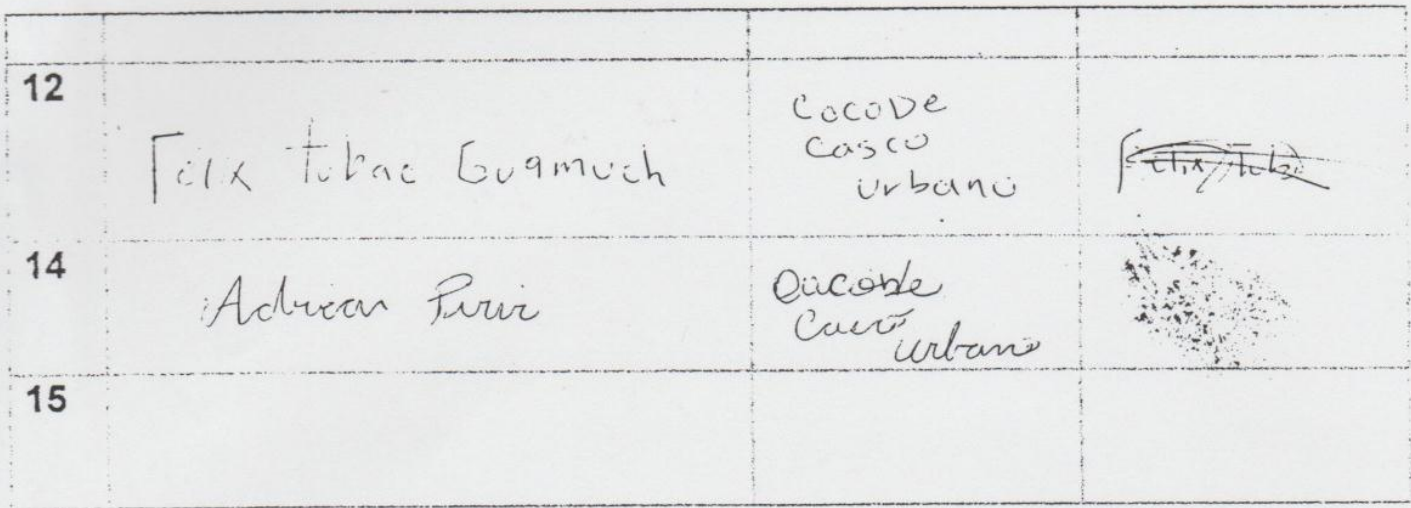 12
Felix tubac Guamuch
Cocode
Casco
urbano
Felix Tuba
14
Adrian Pirir
Cocode
Casco
urbano
15